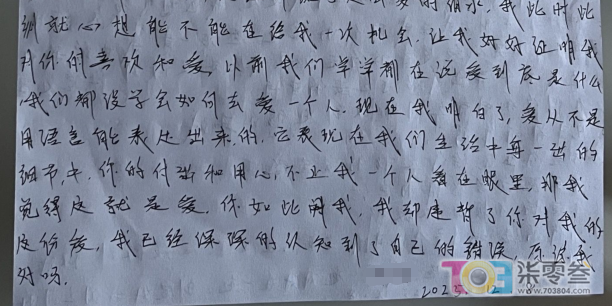 我此时此
刻就心想能不能在给我一次机会,让我好好证明我
对你的喜欢和爱,以前我们常常都在说爱到底是什么
,我们都没学会如何去爱一个人,现在我明白了,爱从不是
用语言能表达出来的,它表现在我们生活中每一处的
细节中,你的付出和用心,不止我一个人看在眼里,那我
觉得这就是爱,你如此用我,我却辜负了你对我的
这份爱,我已经深深的认知到了自己的错误,原谅我
好吗。
2025 2
703柒零叁
www.703804.com